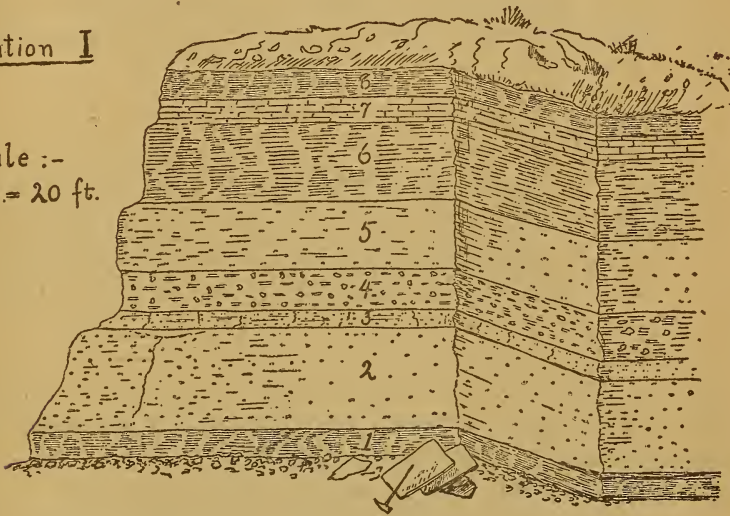 tion I
ale :-
. = 20 ft.
8
7
6
5
4
3
2
1